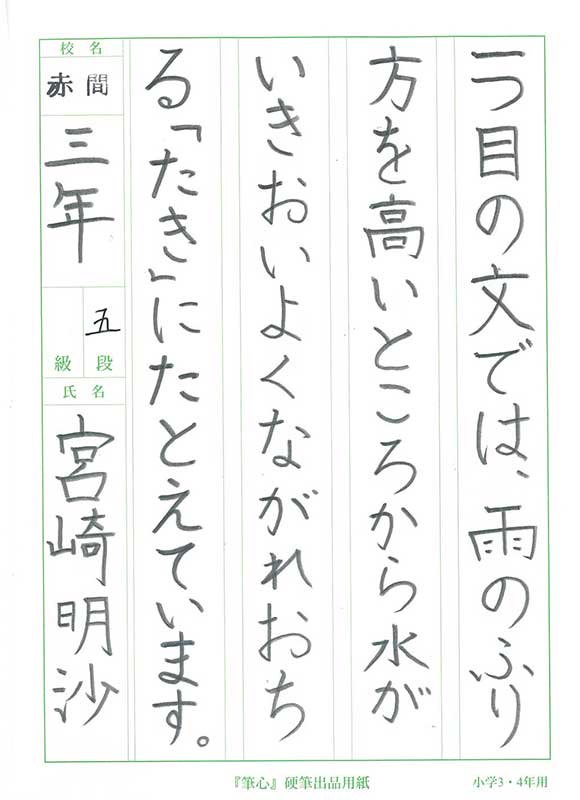 一つ目の文では、雨のふり
方を高いところから水が
いきおいよくながれおち
る「たき」にたとえています。
校名
赤間
三年
五
級段
氏名
宮崎明沙
『筆心』硬筆出品用紙
小学3・4年用